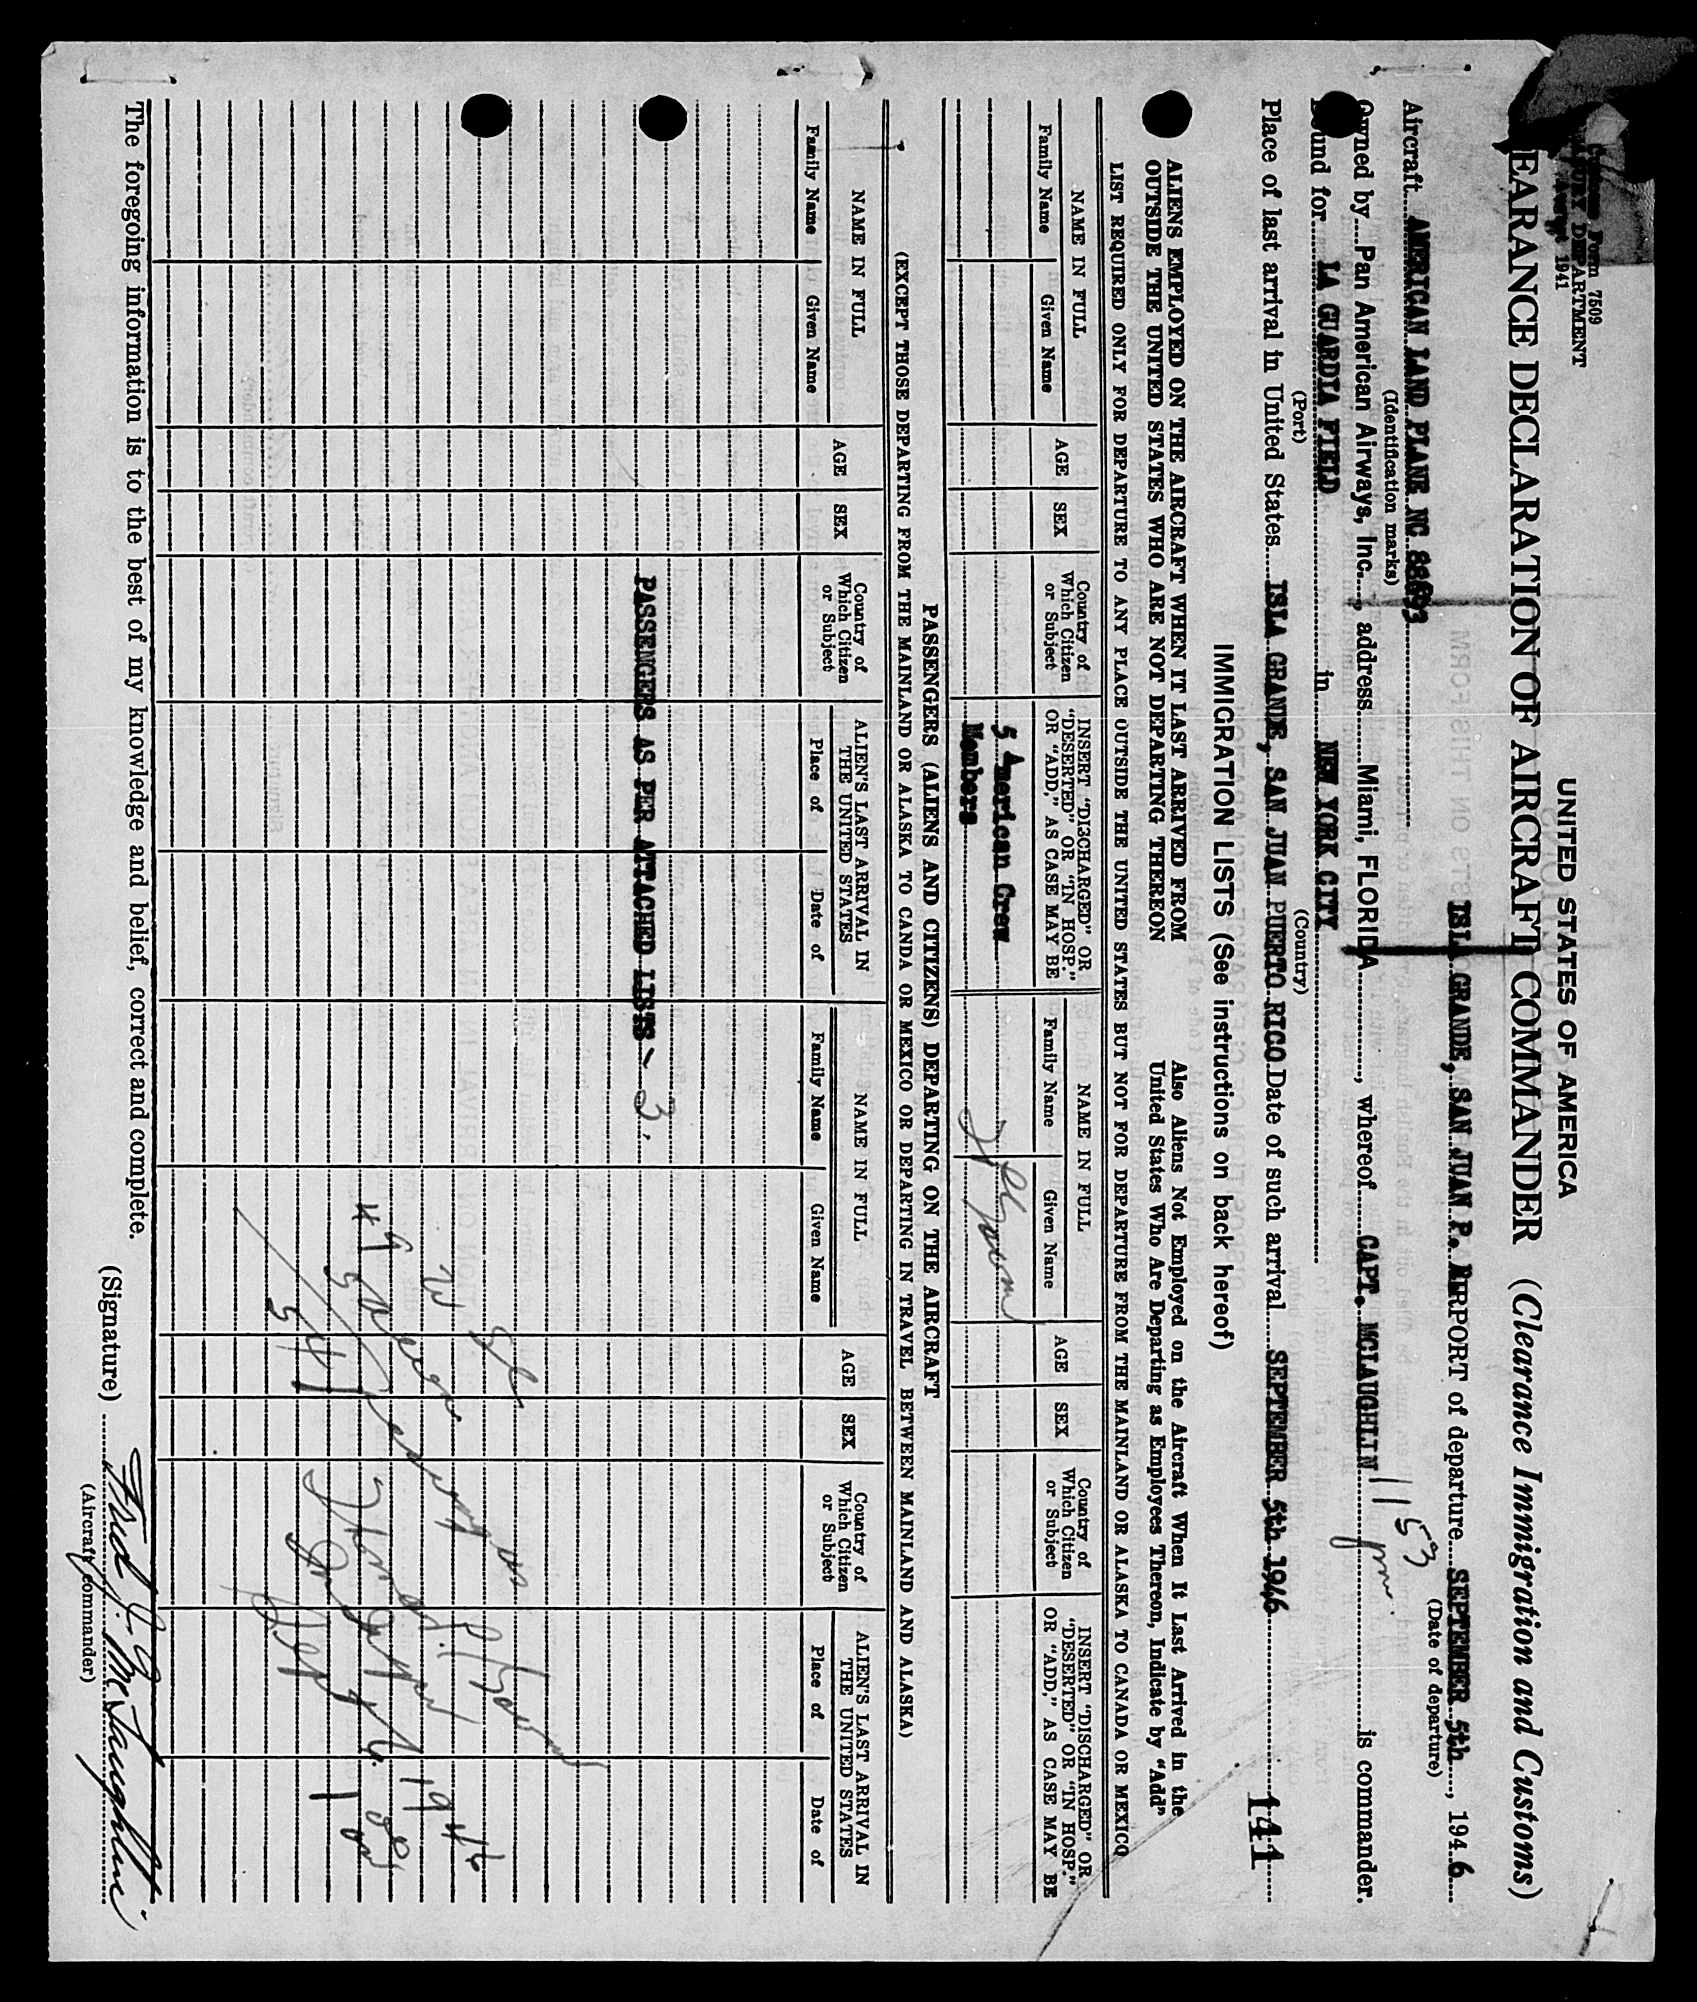 Customs Form 7509
TREASURY DEPARTMENT
August 1941
UNITED STATES OF AMERICA
EARANCE DECLARATION OF AIRCRAFT COMMANDER (Clearance Immigration and Customs)
ISLA GRANDE, SAN JUAN P. AIRPORT of departure SEPTEMBER 5th, 1946
(Date of departure)
Aircraft AMERICAN LAND PLANE NC 88693
(Identification marks)
11 53 pm.
Owned by Pan American Airways, Inc., address Miami, FLORIDA, whereof CAPT. MCLAUGHLIN is commander.
ound for LA GUARDIA FIELD in NEW YORK CITY
(Port) (Country)
Place of last arrival in United States ISLA GRANDE, SAN JUAN PUERTO RICO Date of such arrival SEPTEMBER 5th 1946
141
IMMIGRATION LISTS (See instructions on back hereof)
ALIENS EMPLOYED ON THE AIRCRAFT WHEN IT LAST ARRIVED FROM
OUTSIDE THE UNITED STATES WHO ARE NOT DEPARTING THEREON
Also Aliens Not Employed on the Aircraft When It Last Arrived in the
United States Who Are Departing as Employees Thereon, Indicate by "Add"
LIST REQUIRED ONLY FOR DEPARTURE TO ANY PLACE OUTSIDE THE UNITED STATES BUT NOT FOR DEPARTURE FROM THE MAINLAND OR ALASKA TO CANADA OR MEXICO
NAME IN FULL
Family Name Given Name
AGE SEX
Country of
Which Citizen
or Subject
INSERT "DISCHARGED" OR
"DESERTED" OR "IN HOSP."
OR "ADD," AS CASE MAY BE
NAME IN FULL
Family Name Given Name
AGE SEX
Country of
Which Citizen
or Subject
INSERT "DISCHARGED" OR
"DESERTED" OR "IN HOSP."
OR "ADD," AS CASE MAY BE
5 American Crew
Members
PASSENGERS (ALIENS AND CITIZENS) DEPARTING ON THE AIRCRAFT
(EXCEPT THOSE DEPARTING FROM THE MAINLAND OR ALASKA TO CANDA OR MEXICO OR DEPARTING IN TRAVEL BETWEEN MAINLAND AND ALASKA)
NAME IN FULL
Family Name Given Name
AGE SEX
Country of
Which Citizen
or Subject
ALIEN'S LAST ARRIVAL IN
THE UNITED STATES
Place of Date of
NAME IN FULL
Family Name Given Name
AGE SEX
Country of
Which Citizen
or Subject
ALIEN'S LAST ARRIVAL IN
THE UNITED STATES
Place of Date of
PASSENGERS AS PER ATTACHED LISTS - 3.
1946
541
The foregoing information is to the best of my knowledge and belief, correct and complete.
(Signature) Fred J. McLaughlin
(Aircraft commander)